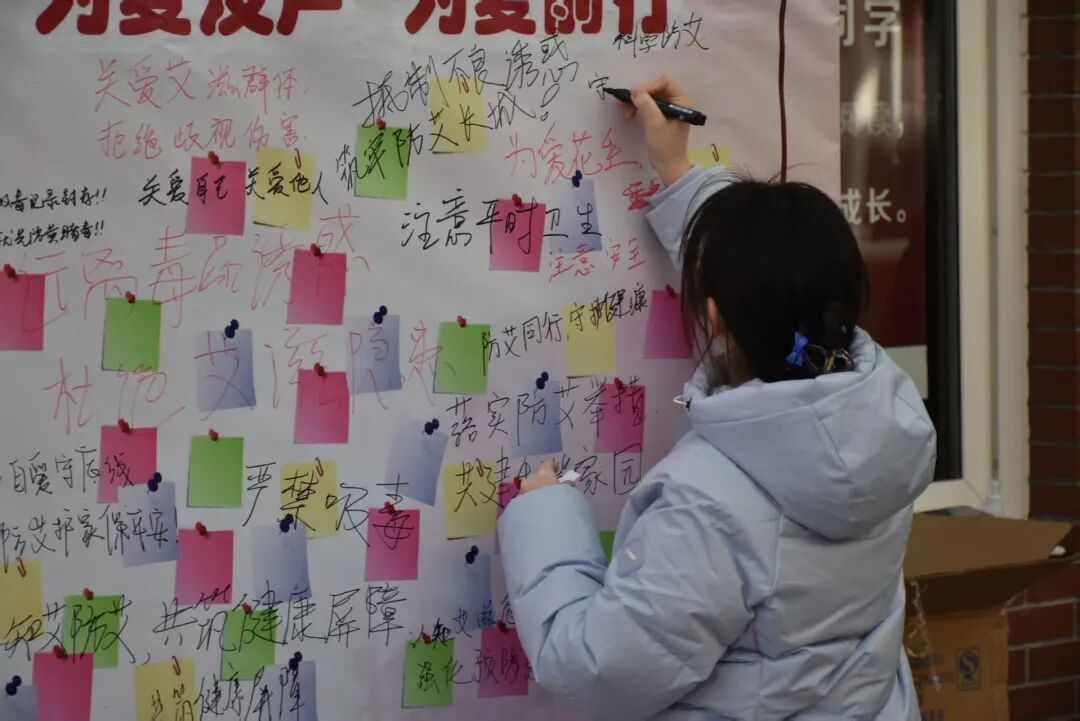 为爱发声 为爱前行
同学
成长。
科学防艾
关爱艾滋群体
拒绝歧视伤害
抵制不良诱惑
筑牢防艾长城!
守
为爱花生
关爱自己 关爱他人
注意平时卫生
注意安全
毒品诱惑
防艾同行,守护健康
杜绝艾滋
落实防艾举措
自爱守底线
严禁吸毒
共建 家园
防艾护家保平安!
知艾防艾,共筑健康屏障
强化预防
共筑健康屏障